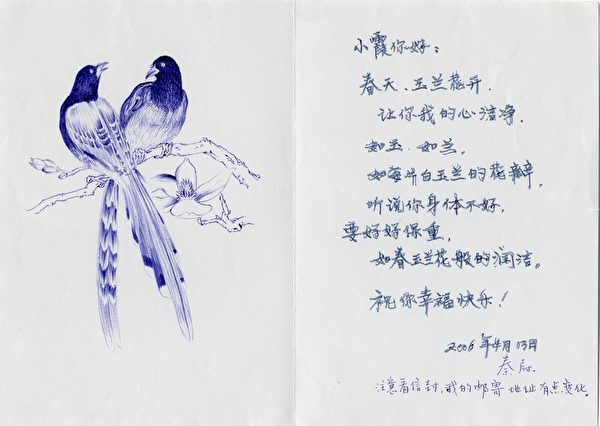 小霞你好：
春天、玉兰花开.
让你我的心洁净.
如玉、如兰.
如每片白玉兰的花瓣.
听说你身体不好.
要好好保重.
如春玉兰花般的润洁。
祝你幸福快乐！
2006年4月13日
秦尉.
注意看信封,我的邮寄地址有点变化.